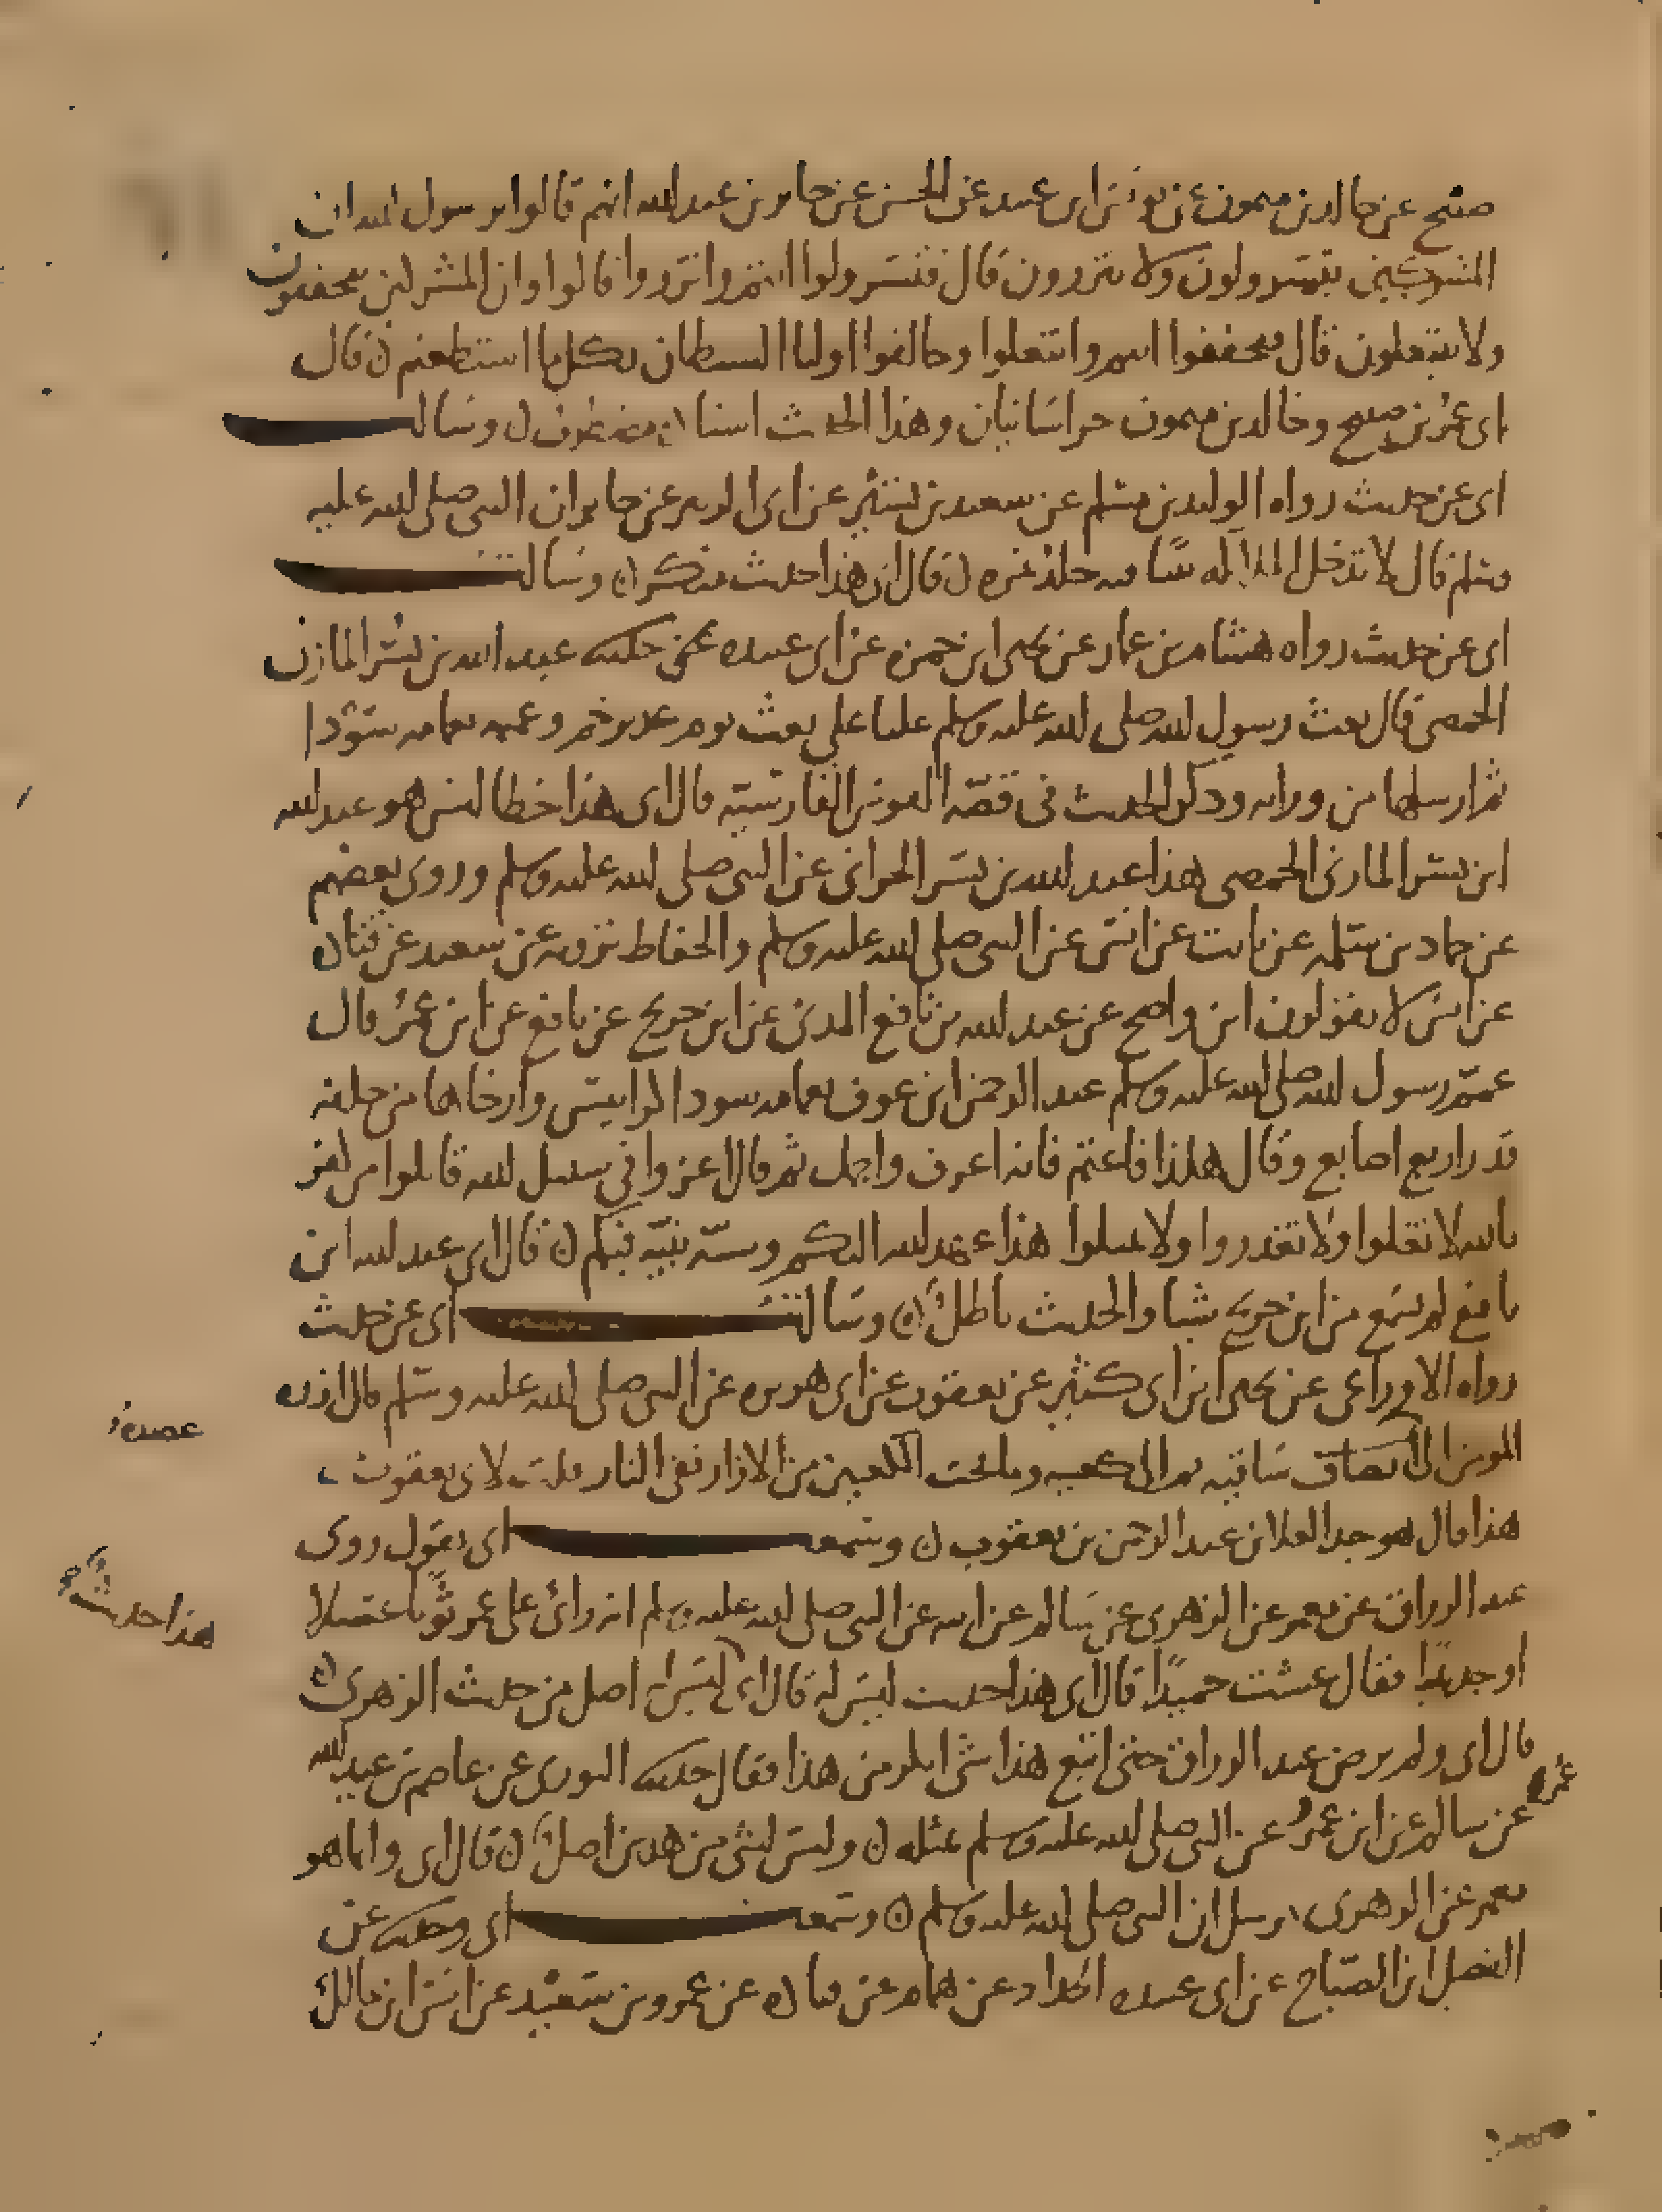 صبح عن خالد بن ميمون عن يونس ابن عبيد عن الحسن عن جابر بن عبد الله انهم قالوا يرسول الله ان
المشركين يتسرولون ولا يتزرون قال فتسرولوا انتم واتزروا قالوا وان المشركين يتخففون
ولا ينتعلون قال فتخففوا انتم وانتعلوا وخالفوا اوليا الشيطان بكل ما استطعتم ن قال
ابي عمر بن صبح وخالد بن ميمون خراسانيان وهذا الحديث اسناده مضطرب ن وسالت
ابي عن حديث رواه الوليد بن مسلم عن سعيد بن بشير عن ابي الزبير عن جابر ان النبي صلى الله عليه
وسلم قال لا تدخل الملائكة بيتا فيه جلد نمر ن قال ابي هذا حديث منكر ن وسالت
ابي عن حديث رواه هشام بن عمار عن يحيى ابن حمزه عن ابي عبيده عن عبد الله بن بسر المازني
الحمصي قال بعث رسول الله صلى الله عليه وسلم عليا على بعث يوم غدير خم وعممه بعمامه سودا
ثم ارسلها من ورايه وذكر الحديث في قصة القوس الفارسية قال ابي هذا خطا ليس هو عبد الله
ابن بسر المازني الحمصي هذا عبد الله بن بسر الحراني عن النبي صلى الله عليه وسلم وروى بعضهم
عن حماد بن سلمه عن ثابت عن انس عن النبي صلى الله عليه وسلم والحفاظ يرويه عن سعيد عن
عن انس لا يقولون ابن واضح عن عبد الله بن نافع المدني عن ابن جريج عن نافع عن ابن عمر قال
عمم رسول الله صلى الله عليه وسلم عبد الرحمن ابن عوف بعمامه سودا كرابيس وارخاها من خلفه
قدر اربع اصابع وقال هكذا فاعتم فانه اعرف واجمل ثم قال اغزوا في سبيل الله قاتلوا من كفر
بالله لا تغلوا ولا تغدروا ولا تمثلوا هذا عهد لله اليكم وسنة نبيه فيكم ن قال ابي عبد الله ابن
نافع لم يسمع من ابن جريج شيا والحديث باطل ن وسالت ابي عن حديث
رواه الاوزاعي عن يحيى ابن ابي كثير عن يعقوب عن ابي هريره عن النبي صلى الله عليه وسلم قال ازره
المومن الى انصاف ساقيه ثم الى كعبيه وما تحت الكعبين من الازار ففي النار قلت لابي يعقوب
هذا قال هو جد العلا بن عبد الرحمن بن يعقوب ن وسمعت ابي يقول روى
عبد الرزاق عن معمر عن الزهري عن سالم عن ابيه عن النبي صلى الله عليه وسلم انه راى على عمر ثوبا غسيلا
او جديدا فقال عشت حميدا قال ابي هذا حديث ليس له قال ابي ليس له اصل من حديث الزهري ن
قال ابي ولم يرض عبد الرزاق حتى اتبع هذا شي انكر من هذا فقال الثوري عن عاصم بن عبيد الله
عن سالم عن ابن عمر عن النبي صلى الله عليه وسلم مثله ن وليس لشي من هذين اصل ن قال ابي وانما هو
معمر عن الزهري مرسل ان النبي صلى الله عليه وسلم ن وسمعت ابي وحدثنا عن
الفضل ابن الصباح عن ابي عبيده الحداد عن همام عن قتاده عن عمرو بن سعيد عن انس ابن مالك
هذا حديث